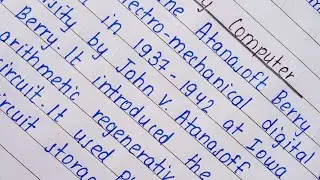 y Computer
e Atanasoft Berry
ectro-mechanical digital
in 1937-1942 at Iowa
sity by John V. Atanasoff
Berry. It introduced the
arithmetic regenerativ
circuit. It used p
circuit storag